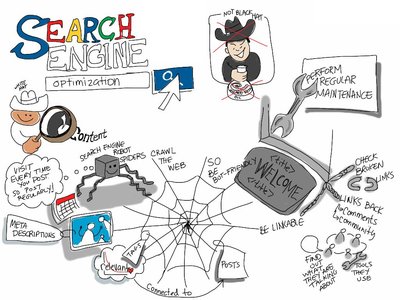 SEARCH
ENGINE
optimization
NOT BLACK HAT
WHITE
HAT
Content
PERFORM
REGULAR
MAINTENANCE
SEARCH ENGINE
ROBOT
SPIDERS
CRAWL
THE
WEB
SO
BE
BOT-FRIENDLY
<title>
WELCOME
<title>
VISIT
EVERY TIME
YOU POST
SO POST
REGULARLY!
CHECK
BROKEN
LINKS
LINKS BACK
to comments
to community
BE LINKABLE
META
DESCRIPTIONS
TAGS
relevant
POSTS
Connected to
FIND
OUT
WHAT ARE
THEY ARE
TALKING
ABOUT
TOOLS
THEY
USE